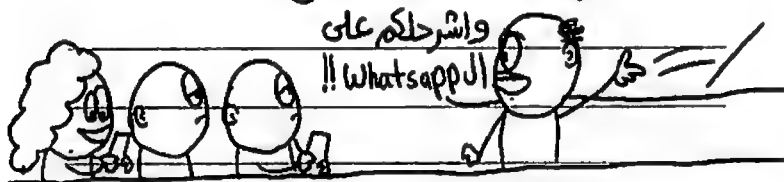 واشرحلكم على
ال Whatsapp !!